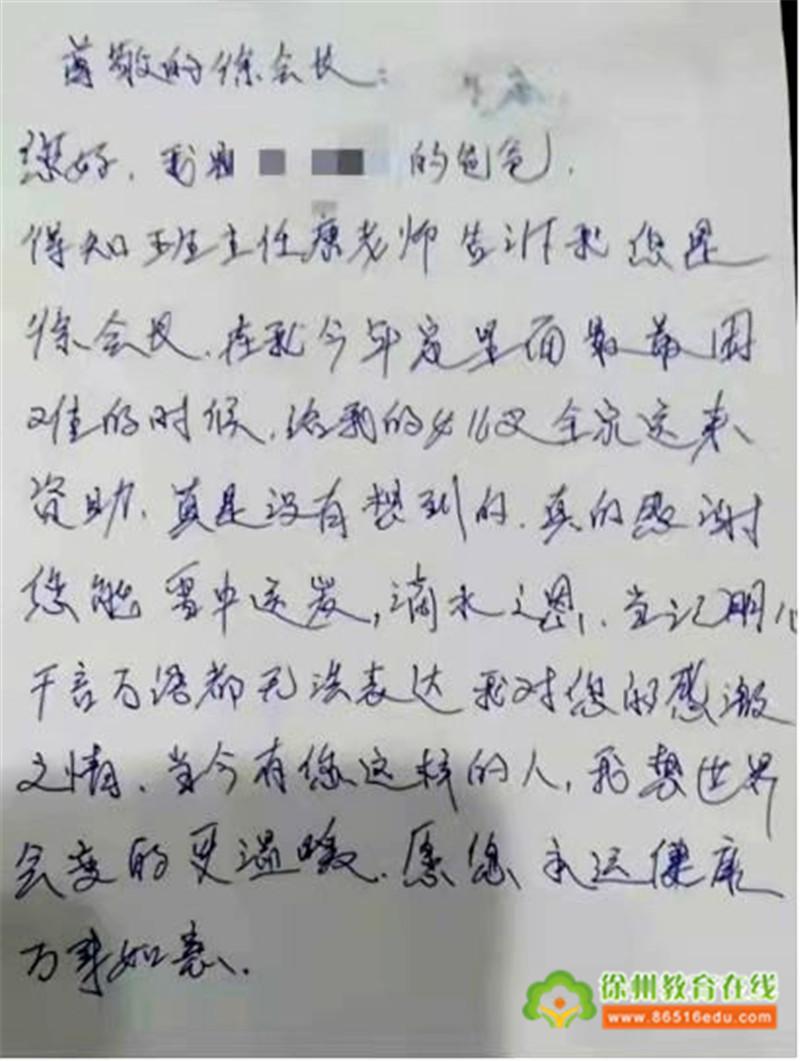 尊敬的徐会长:
您好、我是 的爸爸,
得知班主任唐老师告诉我您是
徐会长、在我今年家里面最最困
难的时候,给我的女儿又全家送来
资助、真是没有想到的、真的感谢
您能雪中送炭,滴水之恩、当记
千言万语都无法表达我对您的感激
之情、当今有您这样的人,我想世界
会变的更温暖、愿您永远健康
万事如意、
徐州教育在线
www.86516edu.com